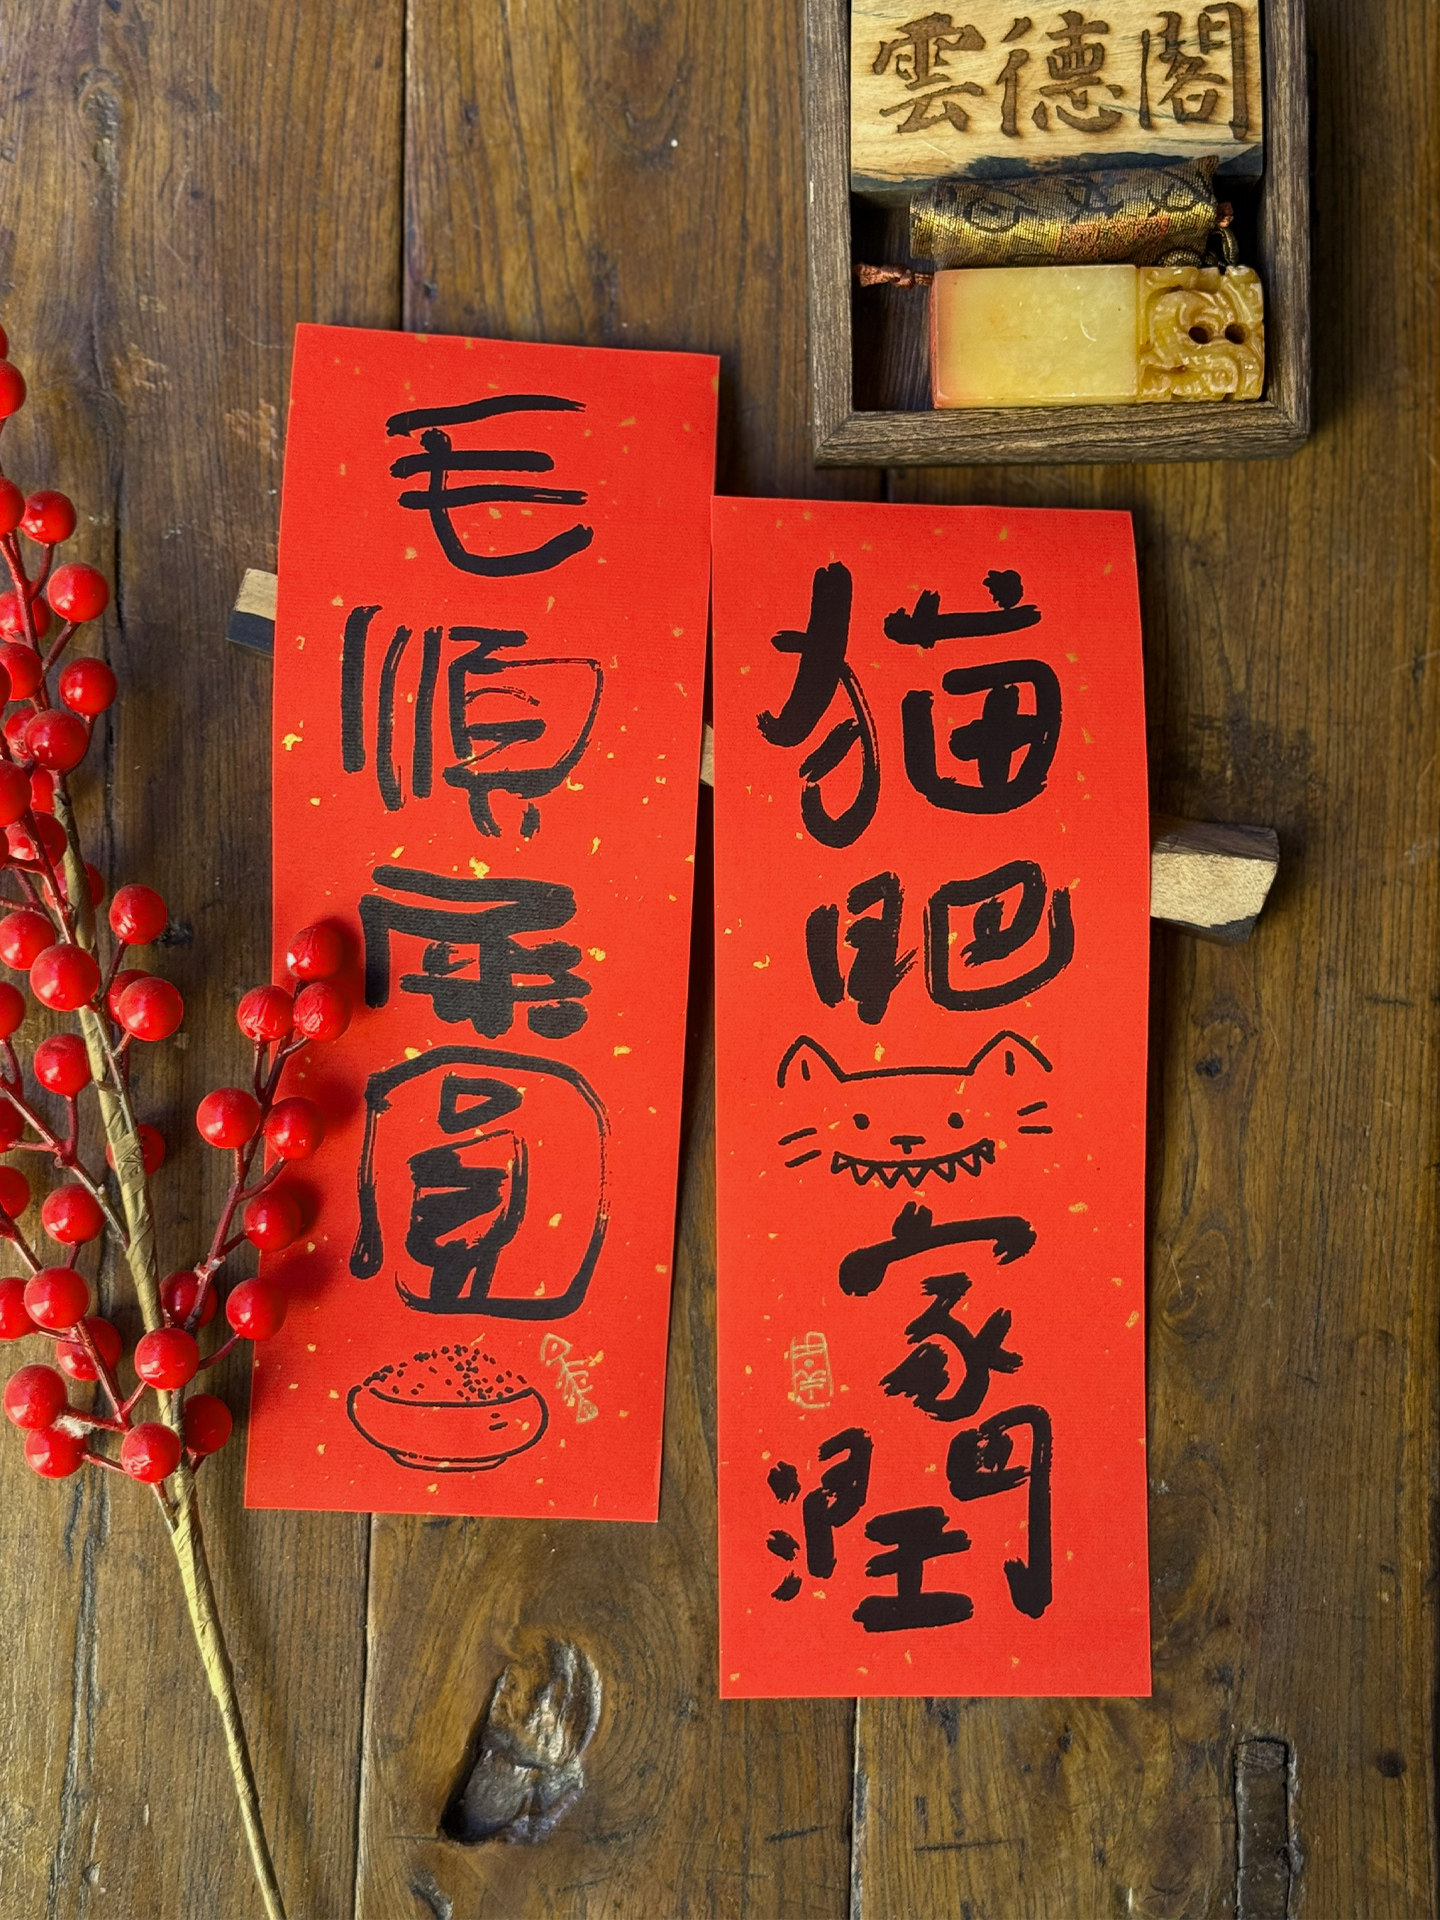 雲德閣
猫肥家潤
毛順屎圓